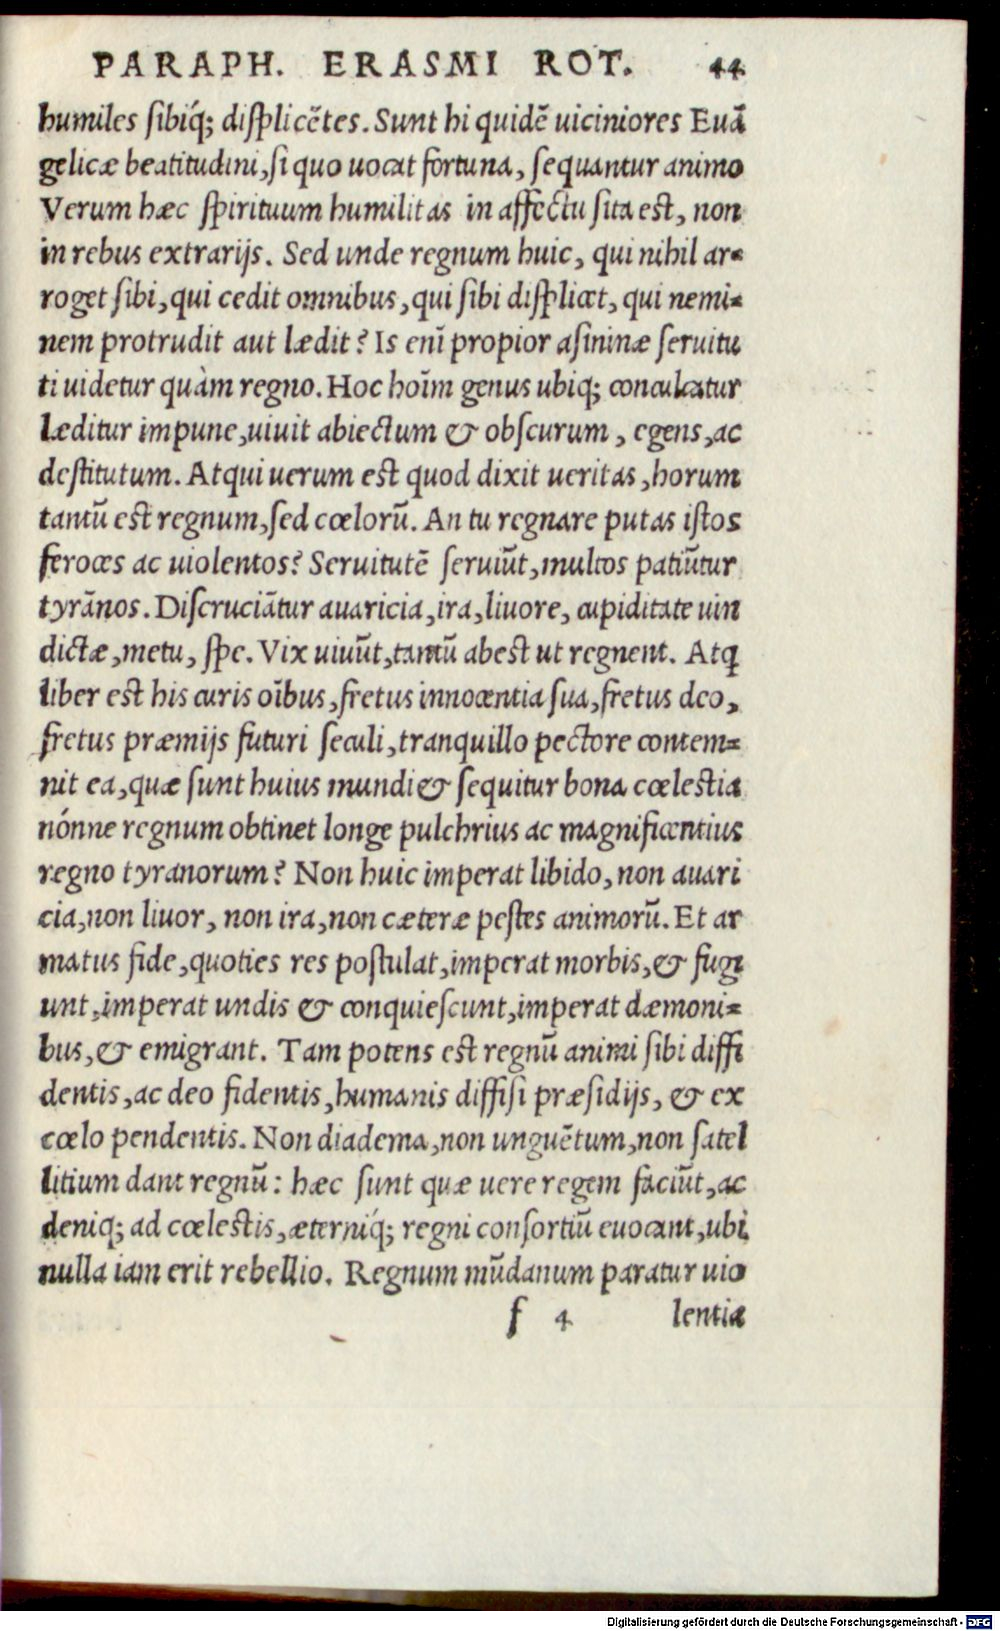 PARAPH. ERASMI ROT. 44
humiles ſibiq́; diſplicẽtes. Sunt hi quidẽ uiciniores Euã
gelicæ beatitudini, ſi quo uocat fortuna, ſequantur animo
Verum hæc ſpirituum humilitas in affectu ſita est, non
in rebus extrarijs. Sed unde regnum huic, qui nihil ar=
roget ſibi, qui cedit omnibus, qui ſibi diſplicet, qui nemi=
nem protrudit aut lædit? Is enĩ propior aſininæ ſeruitu
ti uidetur quàm regno. Hoc hoĩm genus ubiq; conculcatur
læditur impune, uiuit abiectum & obſcurum, egens, ac
deſtitutum. Atqui uerum est quod dixit ueritas, horum
tantũ est regnum, ſed cœlorũ. An tu regnare putas iſtos
feroces ac uiolentos? Seruitutẽ ſeruiũt, multos patiũtur
tyrãnos. Diſcruciãtur auaricia, ira, liuore, cupiditate uin
dictæ, metu, ſpe. Vix uiuũt, tantũ abest ut regnent. Atq
liber est his curis oĩbus, fretus innocentia ſua, fretus deo,
fretus præmijs futuri ſeculi, tranquillo pectore contem=
nit ea, quæ ſunt huius mundi & ſequitur bona cœlestia
nónne regnum obtinet longe pulchrius ac magnificentius
regno tyranorum? Non huic imperat libido, non auari
cia, non liuor, non ira, non cæteræ peſtes animorũ. Et ar
matus fide, quoties res poſtulat, imperat morbis, & fugi
unt, imperat undis & conquieſcunt, imperat dæmoni=
bus, & emigrant. Tam potens est regnũ animi ſibi diffi
dentis, ac deo fidentis, humanis diffiſi præſidijs, & ex
cœlo pendentis. Non diadema, non unguẽtum, non ſatel
litium dant regnũ: hæc ſunt quæ uere regem faciũt, ac
deniq; ad cœlestis, æterniq́; regni conſortiũ euocant, ubi
nulla iam erit rebellio. Regnum mũdanum paratur uio
f 4 lentia
Digitalisierung gefördert durch die Deutsche Forschungsgemeinschaft - DFG